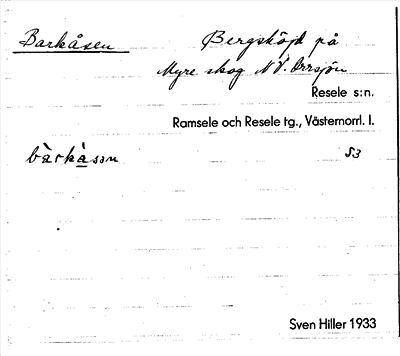 Barkåsen Bergshöjd på
Myre skog N V. Orrsjön
Resele s:n.
Ramsele och Resele tg., Västernorrl. l.
bàrkàsən 53
Sven Hiller 1933